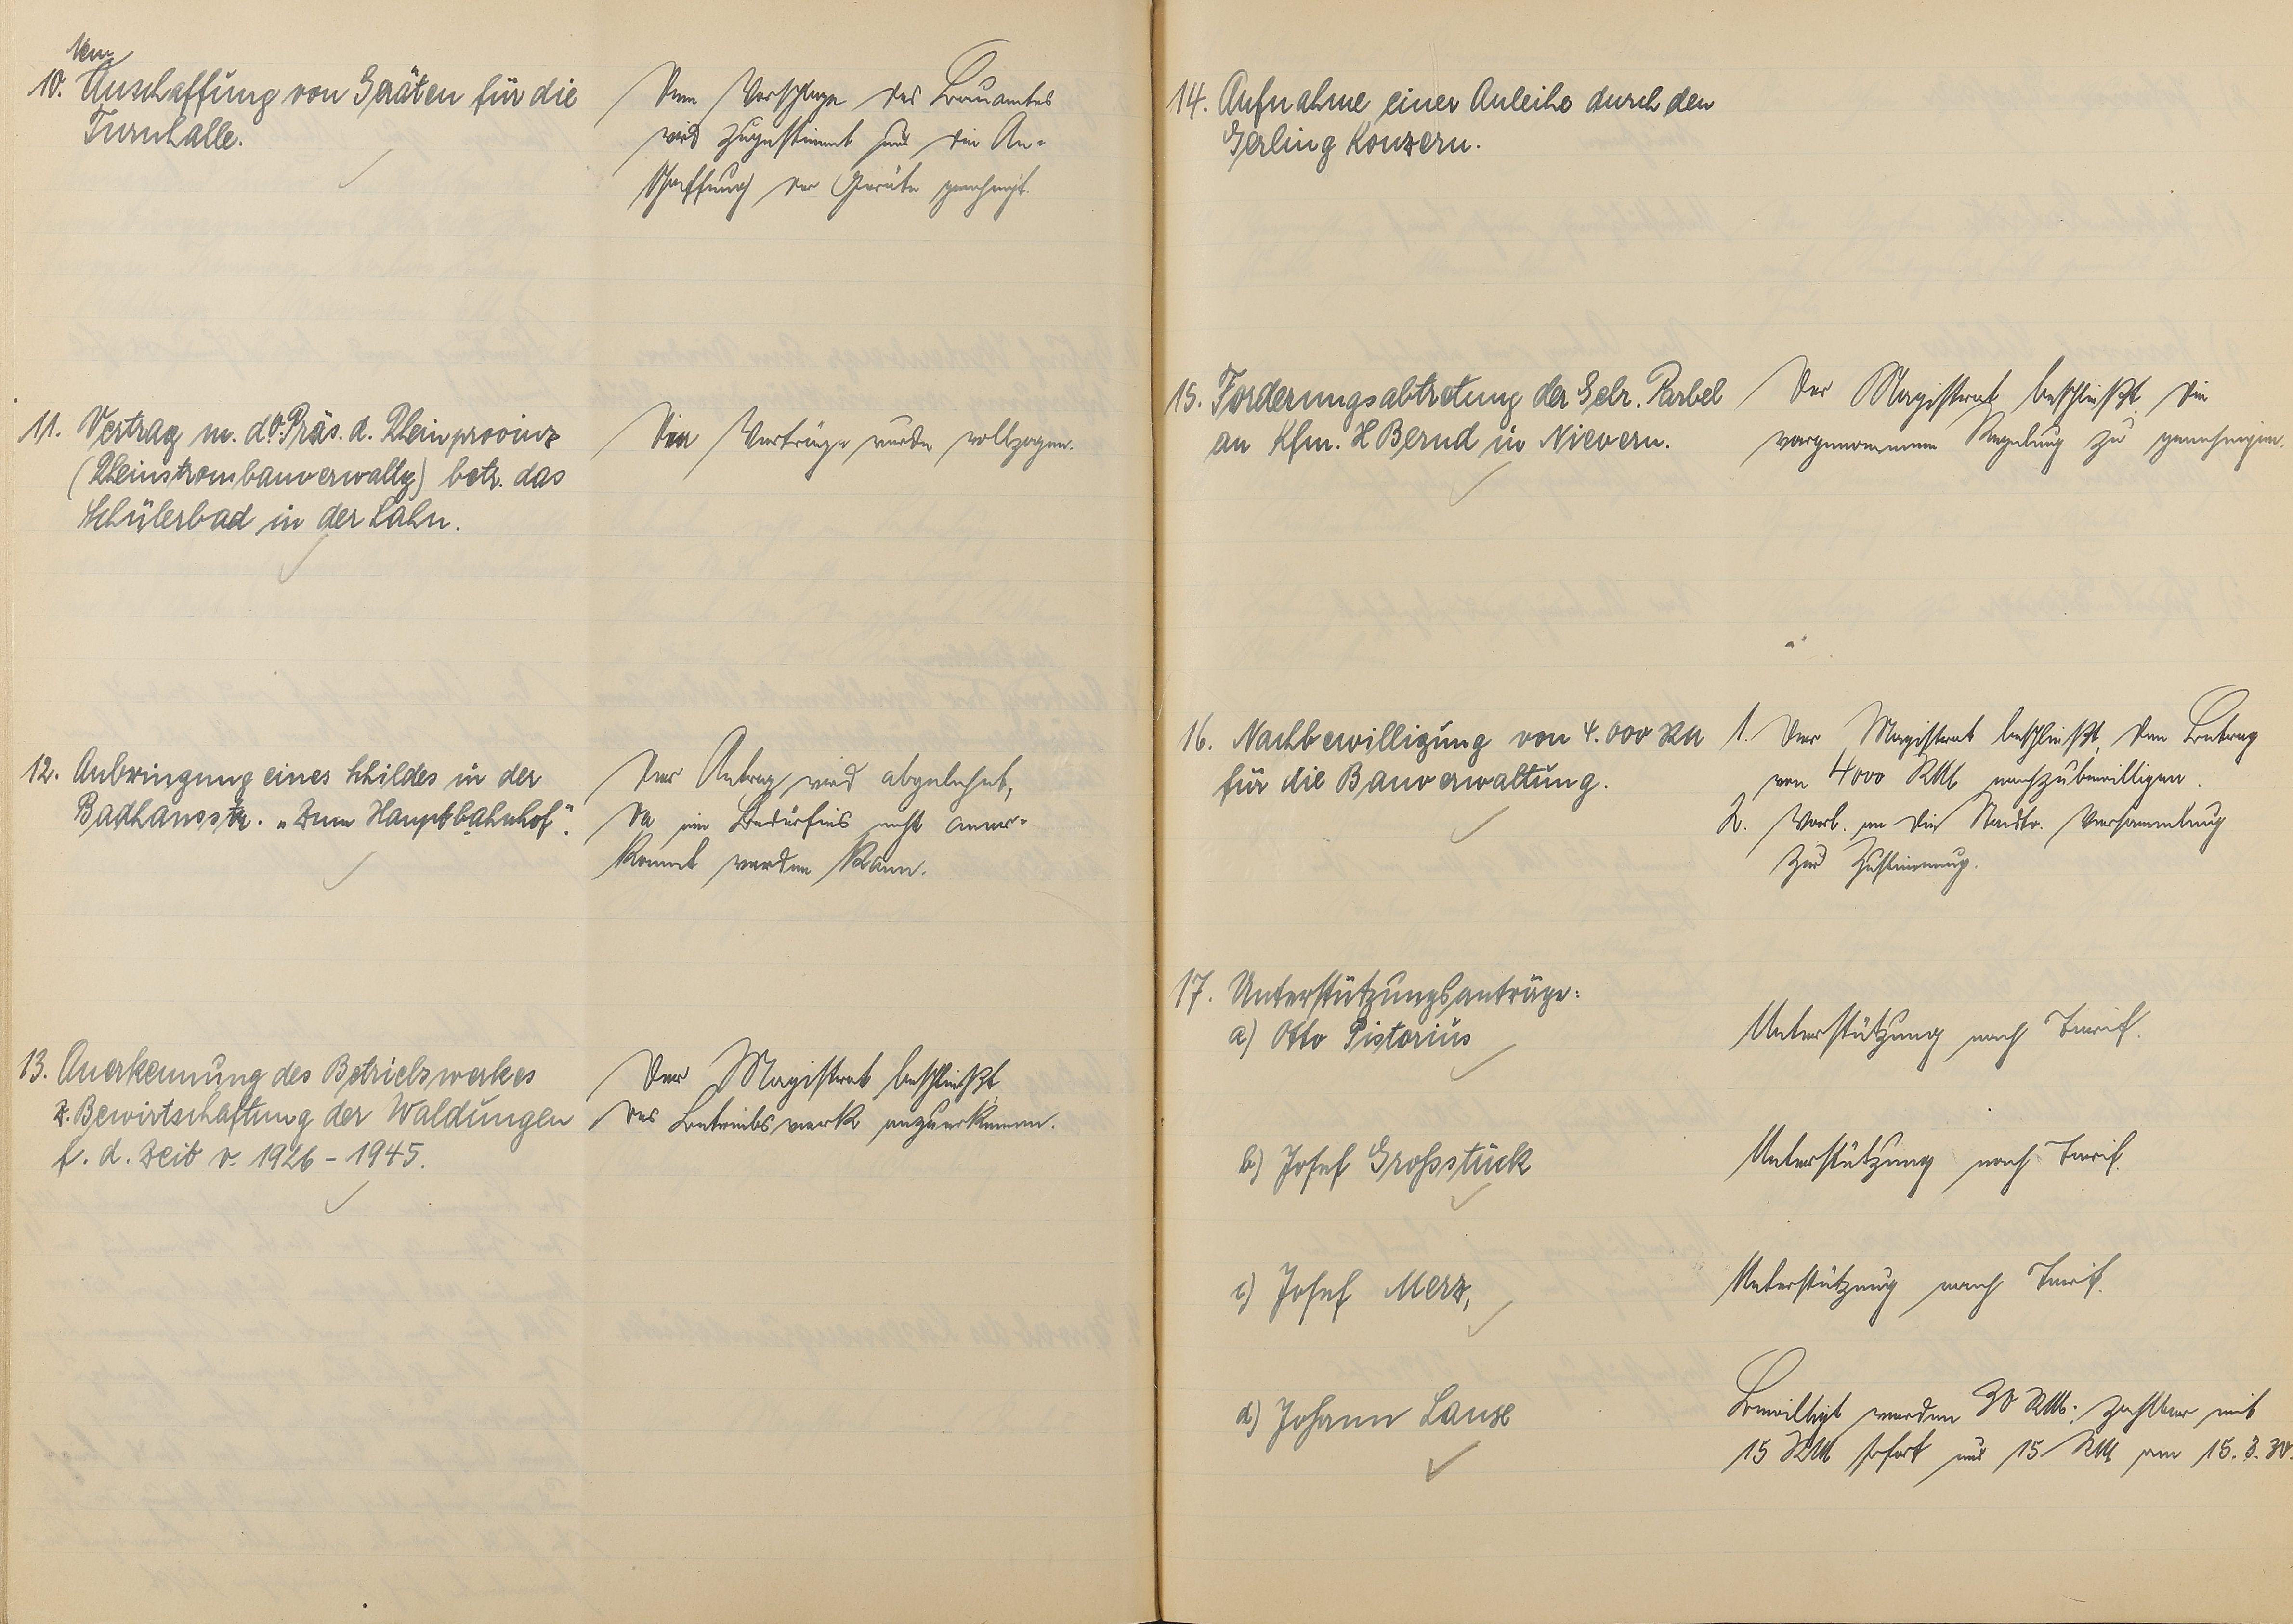 Neu
10. Anschaffung von Geräten für die
Turnhalle.
Dem Vorschlage des Bauamtes
wird zugestimmt und die An-
schaffung der Geräte genehmigt.
11. Vertrag m. d. O. Präs. d. Rheinprovinz
(Rheinstrombauverwaltg) betr. das
Schülerbad in der Lahn.
Die Verträge wurde vollzogen.
12. Anbringung eines Schildes in der
Badhausstr. „Zum Hauptbahnhof".
Der Antrag wird abgelehnt,
da ein Bedürfnis nicht aner-
kannt werden kann.
13. Anerkennung des Betriebswerkes
z. Bewirtschaftung der Waldungen
f. d. Zeit v. 1926 - 1945.
Der Magistrat beschließt,
das Betriebswerk anzuerkennen.
14. Aufnahme einer Anleihe durch den
Gerling Konzern.
15. Forderungsabtretung der Gebr. Parbel
an Kfm. H Bernd in Nievern.
Der Magistrat beschließt, die
vorgenommene Regelung zu genehmigen.
16. Nachbewilligung von 4.000 RM
für die Bauverwaltung.
1. Der Magistrat beschließt, den Betrag
von 4000 RM nachzubewilligen.
2. Vorl. an die Stadtv. Versammlung
zur Zustimmung.
17. Unterstützungsanträge:
a) Otto Pistorius
Unterstützung nach Tarif.
b) Josef Grossstück
Unterstützung nach Tarif.
c) Josef Merz,
Unterstützung nach Tarif.
d) Johann Lause
Bewilligt werden 30 RM. zahlbar mit
15 RM sofort und 15 RM am 15. 3. 30.